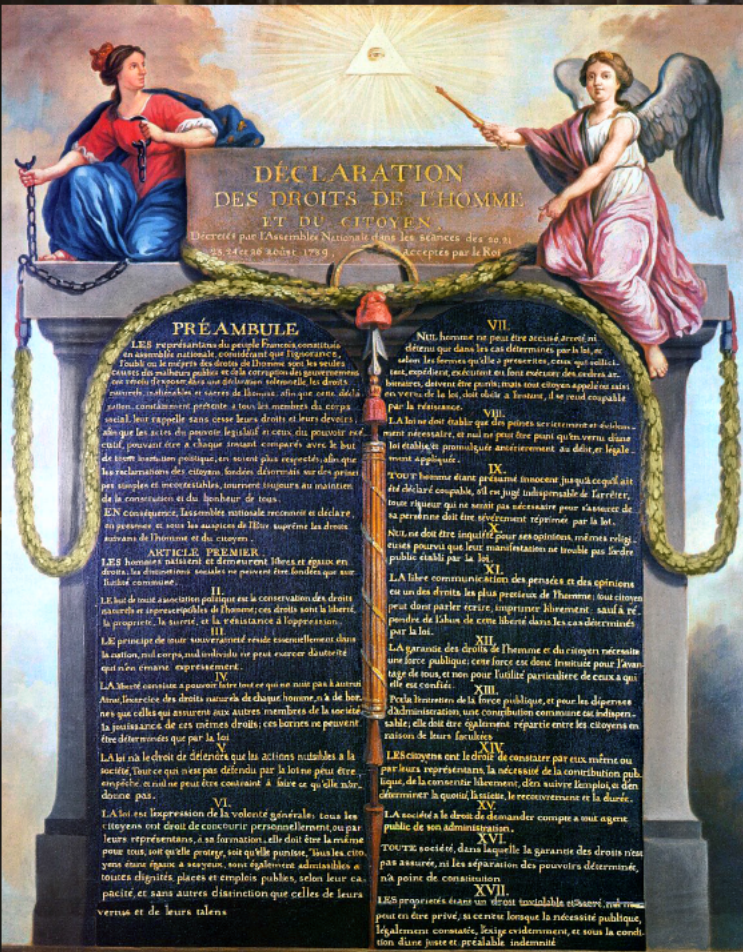 DÉCLARATION
DES DROITS DE L'HOMME
ET DU CITOYEN
Décretés par l'Assemblée Nationale dans les séances des 20, 21
23, 24 et 26 août 1789, acceptés par le Roi
PRÉAMBULE
LES représantans du peuple Francois, constitués
en assemblée nationale, considérant que l'ignorance,
l'oubli ou le mépris des droits de l'homme sont les seules
causes des malheurs publics et de la corruption des gouvernements
ont résolu d'exposer, dans une déclaration solemnelle, les droits
naturels, inaliénables et sacrés de l'homme: afin que cette décla
ration, constamment présente a tous les membres du corps
social, leur rappelle sans cesse leurs droits et leurs devoirs
afin que les actes du pouvoir législatif et ceux du pouvoir exé
cutif, pouvant être a chaque instant comparés avec le but
de toute institution politique, en soient plus respectés; afin que
les reclamations des citoyens, fondées désormais sur des prinei
pes simples et incontestables, tournent toujours au maintien
de la constitution et du bonheur de tous.
EN conséquence, l'assemblée nationale reconnoit et déclare,
en presence et sous les auspices de l'Etre suprême les droits
suivans de l'homme et du citoyen.
ARTICLE PREMIER
LES hommes naissent et demeurent libres et égaux en
droits, les distinctions sociales ne peuvent être fondées que sur
l'utilité commune.
II.
LE but de toute association politique est la conservation des droits
naturels et inprescriptibles de l'homme; ces droits sont la liberté,
la propriété, la sureté, et la résistance à l'oppression.
III
LE principe de toute souveraineté réside essentiellement dans
la nation, nul corps, nul individu ne peut exercer d'autorité
qui n'en émane expressement.
IV
LA liberté consiste a pouvoir faire tout ce qui ne nuit pas à autrui
Ainsi, l'exercice des droits naturels de chaque homme, n'a de bor-
nes que celles qui assurent aux autres membres de la société
la jouissance de ces mêmes droits; ces bornes ne peuvent
être déterminées que par la loi
V
LA loi n'a le droit de défendre que les actions nuisibles à la
société. Tout ce qui n'est pas défendu par la loi ne peut être
empêché, et nul ne peut être contraint à faire ce qu'elle n'or-
donne pas.
VI.
LA loi est l'expression de la volonté générale; tous les
citoyens ont droit de concourir personnellement, ou par
leurs représentans, à sa formation; elle doit être la même
pour tous, soit qu'elle protege, soit qu'elle punisse, Tous les cito
yens étant égaux a ses yeux, sont également admissibles a
toutes dignités, places et emplois publics, selon leur ca-
pacité, et sans autres distinction que celles de leurs
vertus et de leurs talens
VII.
NUL homme ne peut être accusé, arreté, ni
détenu que dans les cas déterminés par la loi, et
selon les formes qu'elle a prescrites, ceux qui sollici-
tent, expédient, exécutent ou font exécuter des ordres ar-
bitraires, doivent être punis; mais tout citoyen appelé ou saisi
en vertu de la loi, doit obéir a l'instant, il se rend coupable
par la résistance.
VIII.
LA loi ne doit établir que des peines strictement et évidem-
ment nécessaire, et nul ne peut être puni qu'en vertu d'une
loi établie, et promulguée antérieurement au délit, et légale-
ment appliquée.
IX.
TOUT homme étant présumé innocent jusqu'à ce qu'il ait
été déclaré coupable, s'il est jugé indispensable de l'arrêter,
toute rigueur qui ne serait pas nécessaire pour s'assurer de
sa personne doit être sévérement réprimée par la loi.
X.
NUL ne doit être inquiété pour ses opinions, mêmes religi-
euses pourvu que leur manifestation ne trouble pas l'ordre
public établi par la loi.
XI.
LA libre communication des pensées et des opinions
est un des droits les plus precieux de l'homme; tout citoyen
peut dont parler écrire, imprimer librement sauf à ré-
pondre de l'abus de cette liberté dans les cas déterminés
par la loi.
XII.
LA garantie des droits de l'homme et du citoyen nécessite
une force publique; cette force est donc instituée pour l'avan-
tage de tous, et non pour l'utilité particuliere de ceux a qui
elle est confiée.
XIII.
Pour l'entretien de la force publique, et pour les dépenses
d'administration, une contribution commune est indispen-
sable; elle doit être également répartie entre les citoyens en
raison de leurs facultées
XIV.
LES citoyens ont le droit de constater par eux même ou
par leurs représentans, la nécessité de la contribution pub-
lique, de la consentir librement, d'en suivre l'emploi, et d'en
déterminer la quotité, l'assiette, le recouvrement et la durée.
XV.
LA société a le droit de demander compte a tout agent
public de son administration.
XVI.
TOUTE société, dans laquelle la garantie des droits n'est
pas assurée, ni les séparation des pouvoirs déterminée,
n'a point de constitution
XVII.
LES proprietés étant un droit inviolable et sacré, nul ne
peut en être privé; si ce n'est lorsque la nécessité publique,
légalement constatée, l'exige evidemment, et sous la condi-
tion d'une juste et préalable indemnité